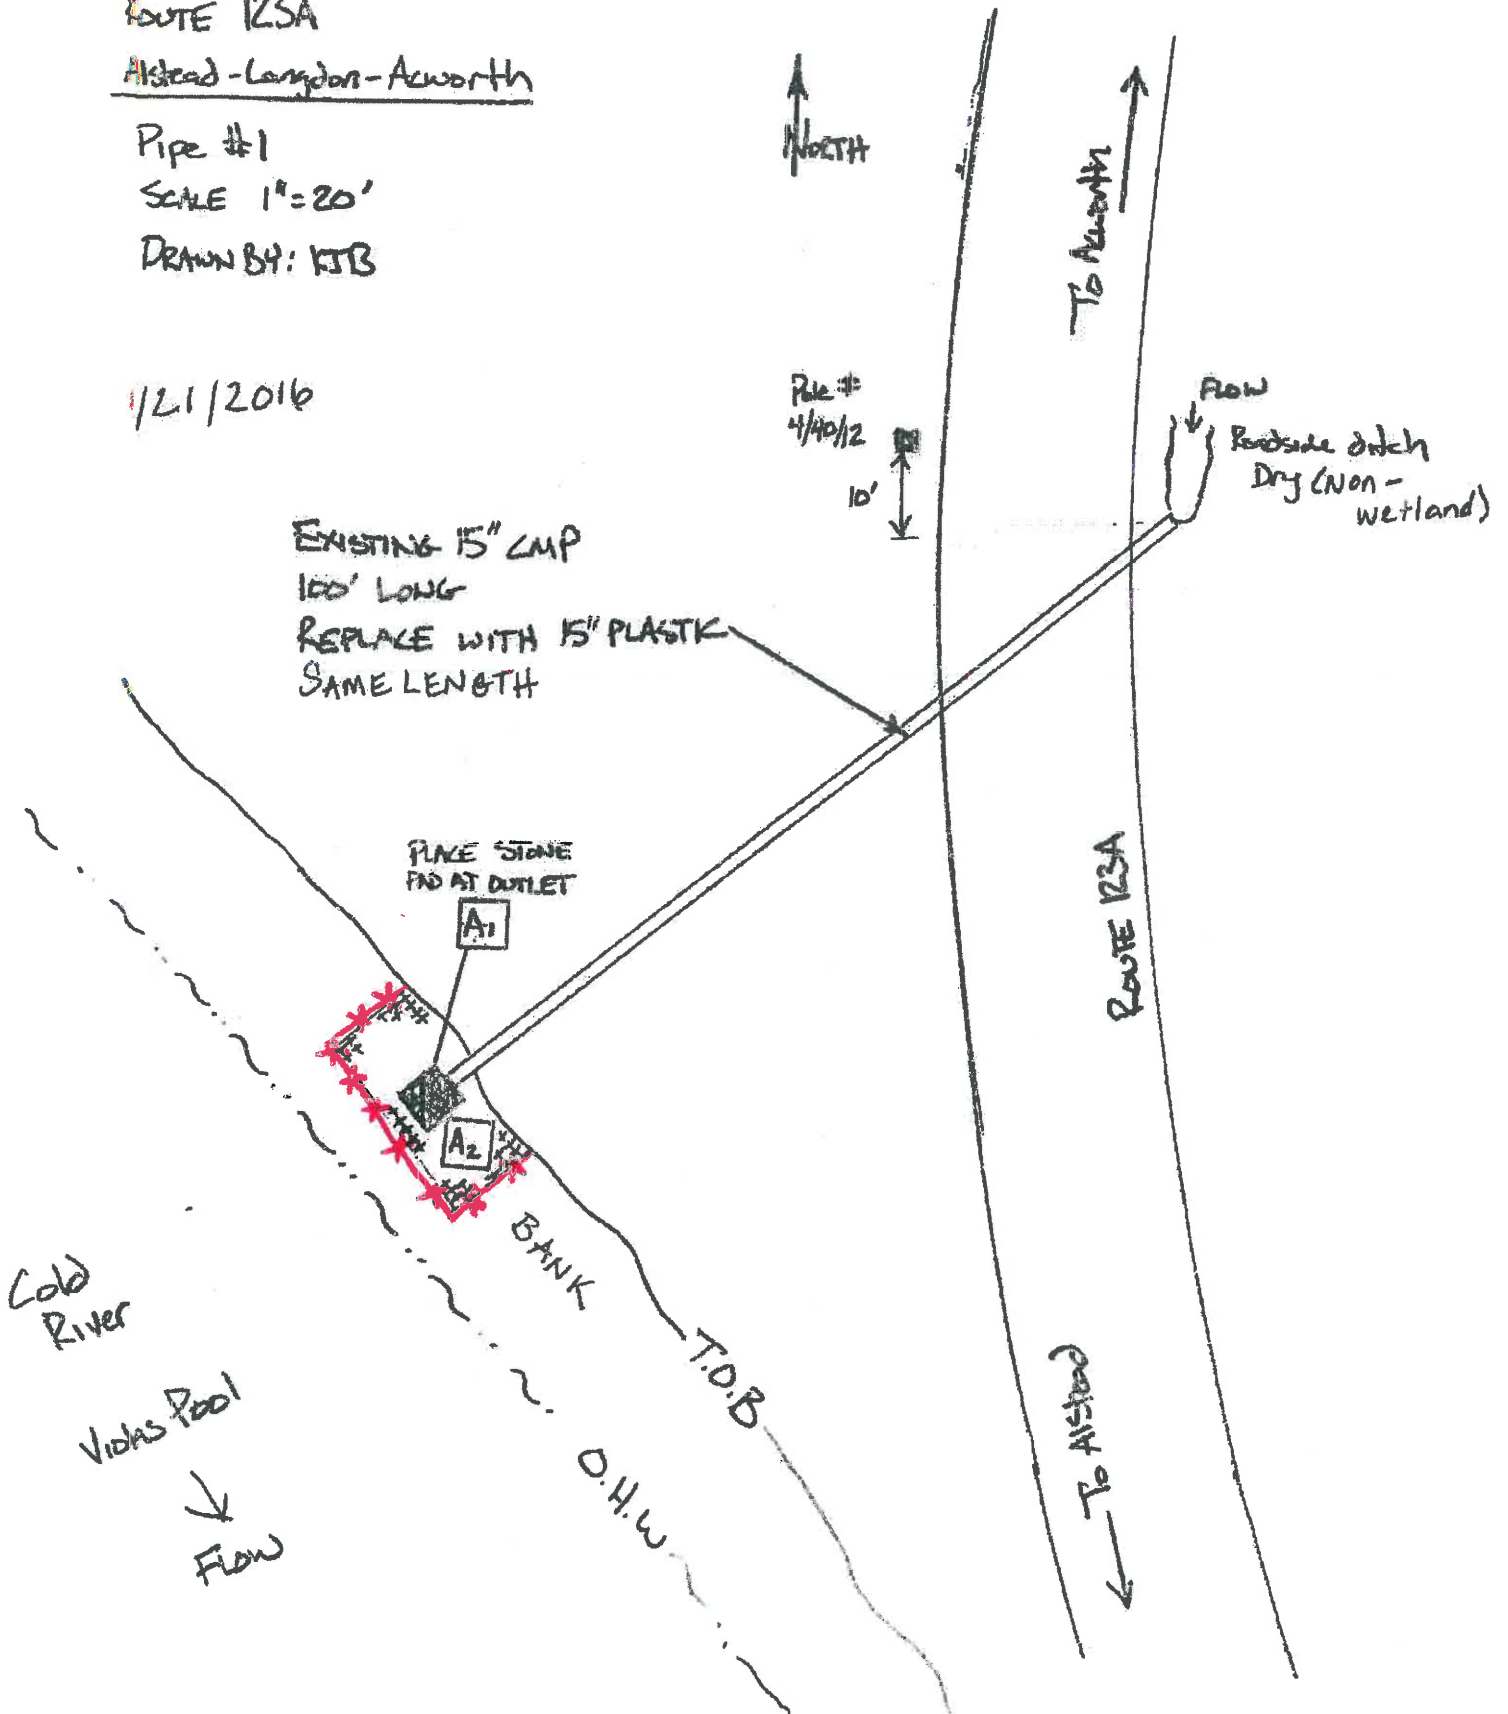 ROUTE 123A
Alstead-Langdon-Acworth
Pipe #1
SCALE 1"=20'
DRAWN BY: KJB
1/21/2016
NORTH
To Acworth
Pole #
4/40/12
10'
FLOW
Roadside ditch
Dry (Non-
wetland)
EXISTING 15" CMP
100' LONG
REPLACE WITH 15" PLASTIC
SAME LENGTH
PLACE STONE
PAD AT OUTLET
A1
A2
ROUTE 123A
BANK
T.O.B
O.H.W
Cold
River
Vidas Pool
FLOW
To Alstead